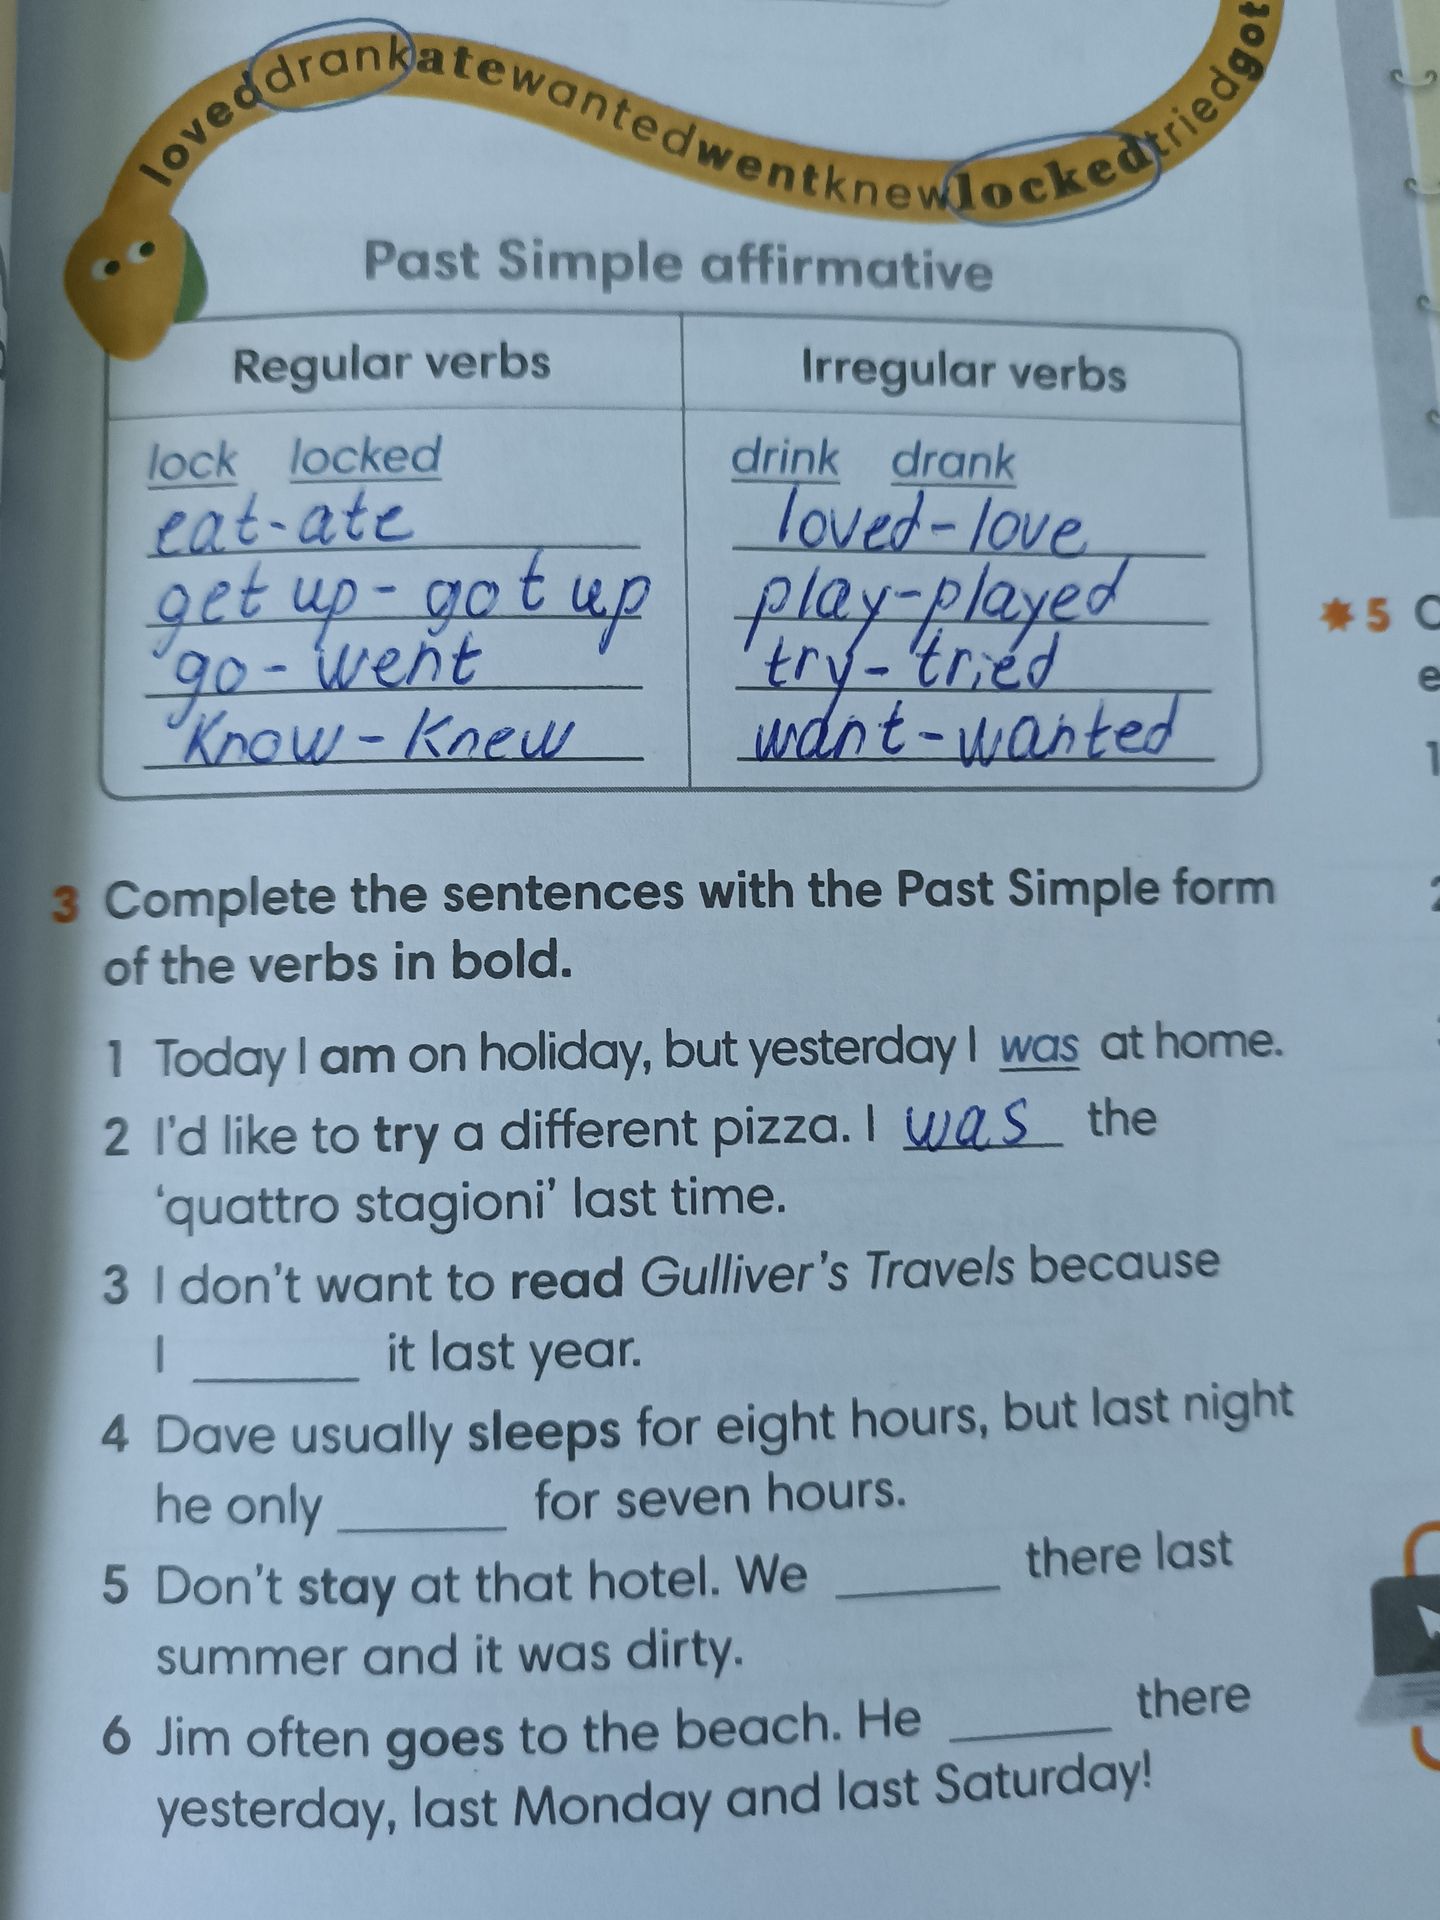 loveddrankatewantedwentknewlockedtriedgot
Past Simple affirmative
Regular verbs Irregular verbs
lock locked drink drank
eat-ate loved-love
get up - got up play-played
go - went try - tried
know - knew want - wanted
5
3 Complete the sentences with the Past Simple form
of the verbs in bold.
1 Today I am on holiday, but yesterday I was at home.
2 I'd like to try a different pizza. I was the
'quattro stagioni' last time.
3 I don't want to read Gulliver's Travels because
I ______ it last year.
4 Dave usually sleeps for eight hours, but last night
he only ______ for seven hours.
5 Don't stay at that hotel. We ______ there last
summer and it was dirty.
6 Jim often goes to the beach. He ______ there
yesterday, last Monday and last Saturday!